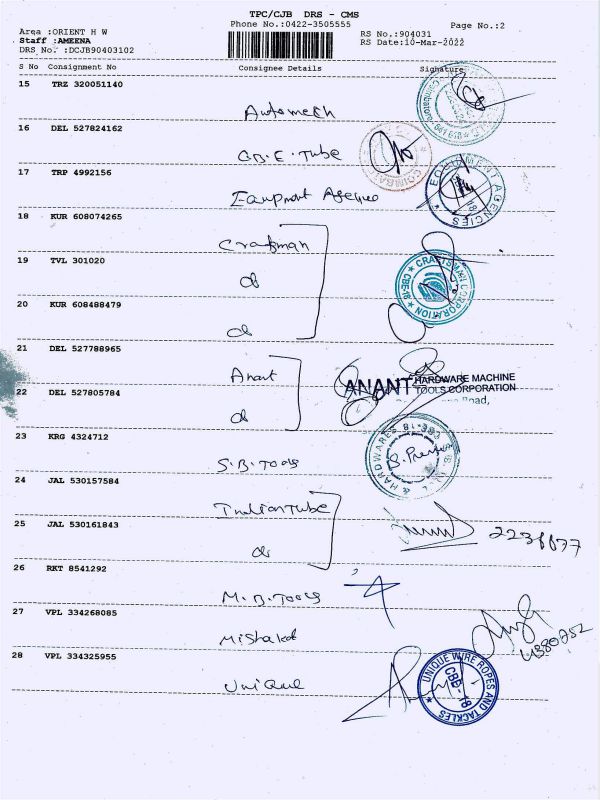 TPC/CJB DRS - CMS
Phone No.:0422-3505555
Page No.:2
Area :ORIENT H W
RS No.:904031
Staff :AMEENA
RS Date:10-Mar-2022
DRS_No. :DCJB90403102
S No Consignment No Consignee Details Signature
15 TRZ 320051140
Automech
16 DEL 527824162
C.B.E. Tube
COIMBATO
17 TRP 4992156
EQUIPMENT AGENCIES
18 KUR 608074265
Craftman
19 TVL 301020
do
CRAFTSMAN CORPORATION
CBE-18
20 KUR 608488479
do
21 DEL 527788965
Anant
ANANT HARDWARE MACHINE
TOOLS CORPORATION
Road,
22 DEL 527805784
do
23 KRG 4324712
S.B.Tools
& HARDWARES
24 JAL 530157584
Indian Tube
25 JAL 530161843
do
26 RKT 8541292
M.B.Tools
27 VPL 334268085
28 VPL 334325955
Unique
UNIQUE WIRE ROPES AND TACKLES
CBE-18